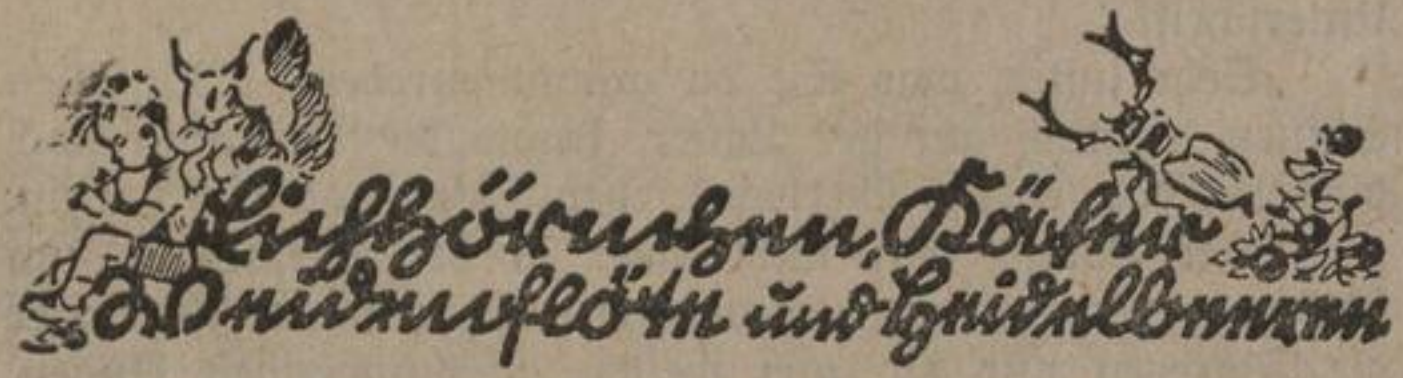 Eichhörnchen, Käfer
Weidenflöte und Heidelbeeren